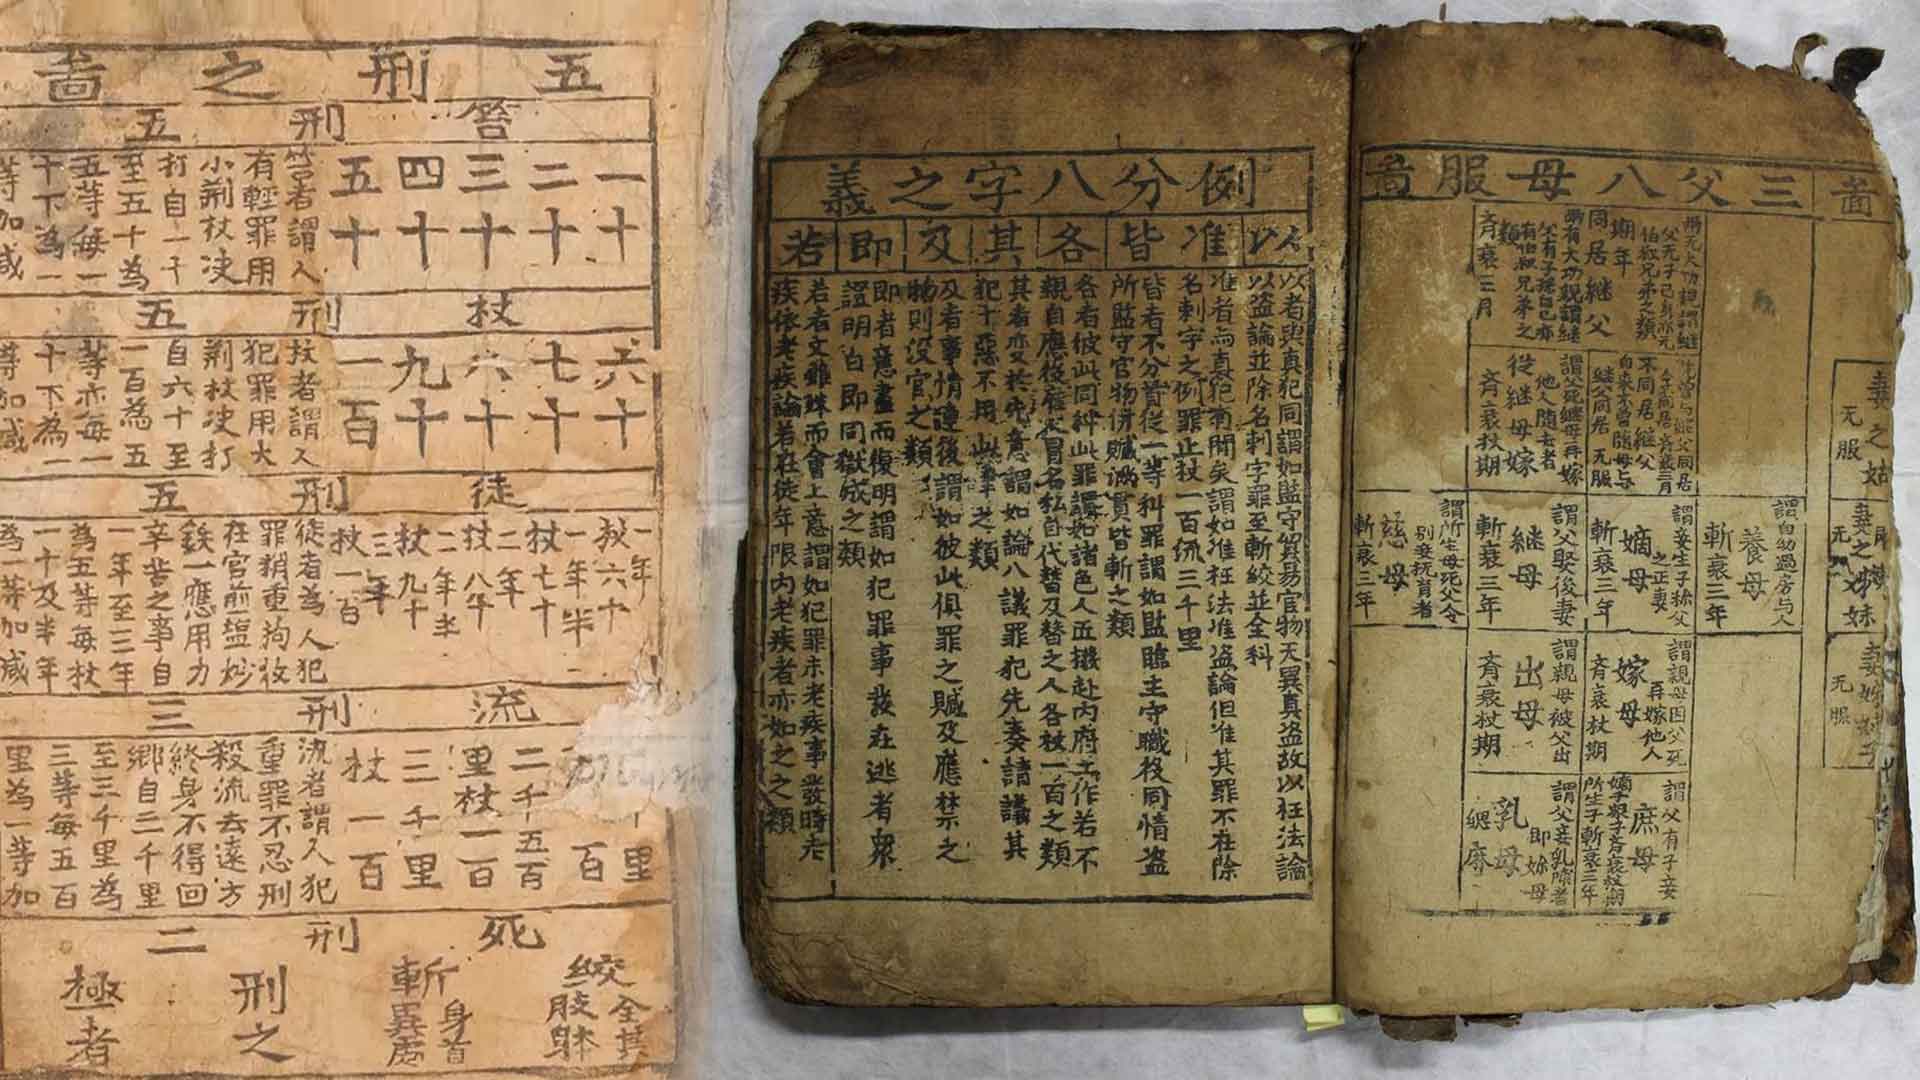 五刑之啚
笞刑五
一十
二十
三十
四十
五十
笞者謂人
有輕罪用
小荆杖决
打自一十
至五十為
五等每一
十下為一
等加减
杖刑五
六十
七十
六十
九十
一百
杖者謂人
犯罪用大
荆杖决打
自六十至
一百為五
等亦每一
十下為一
等加减
徒刑五
一年
杖六十
一年半
杖七十
二年
杖八十
二年半
杖九十
三年
杖一百
徒者為人犯
罪稍重拘收
在官煎塩炒
鉄一應用力
辛苦之事自
一年至三年
為五等每杖
一十及半年
為一等加减
流刑三
里
百
二千五百
里杖一百
三千里
杖一百
流者謂人犯
重罪不忍刑
殺流去遠方
終身不得回
鄉自二千里
至三千里為
三等每五百
里為一等加
死刑二
絞
全其
肢躰
斬
身首
異處
刑之
極者
例分八字之義
以
准
皆
各
其
及
即
若
以者與真犯同謂如監守貿易官物无異真盗故以枉法論
以盗論並除名刺字罪至斬絞並全科
准者與真犯有間矣謂如准枉法准盗論但准其罪不在除
名刺字之例罪止杖一百流三千里
皆者不分首從一等科罪謂如監臨主守職役同情盗
所監守官物併贓滿貫皆斬之類
各者彼此同科此罪謂如諸色人匠撥赴内府工作若不
親自應役雇人冒名私自代替及替之人各杖一百之類
其者变於先意謂如論八議罪犯先奏請議其
犯十惡不用此律之類
及者事情連後謂如彼此俱罪之贓及應禁之
物則没官之類
即者意盡而復明謂如犯罪事發在逃者衆
證明白即同獄成之類
若者文雖殊而會上意謂如犯罪未老疾事發時老
疾依老疾論若在徒年限内老疾者亦如之之類
啚
三父八母服啚
同居继父
期年
斉衰三月
不同居継父
斉衰三月
継父同居
无服
從継母嫁
謂父死継母再嫁
他人随去者
斉衰杖期
養母
謂自幼過房与人
斬衰三年
嫡母
謂妾生子称父
之正妻
斬衰三年
継母
謂父娶後妻
斬衰三年
慈母
謂所生母死父令
别妾抚育者
斬衰三年
嫁母
謂親母因父死
再嫁他人
斉衰杖期
出母
謂親母被父出
斉衰杖期
庶母
謂父有子妾
嫡子衆子斉衰杖期
所生子斬衰三年
乳母
謂父妾乳哺者
即妳母
緦麻
妻之姑
无服
无